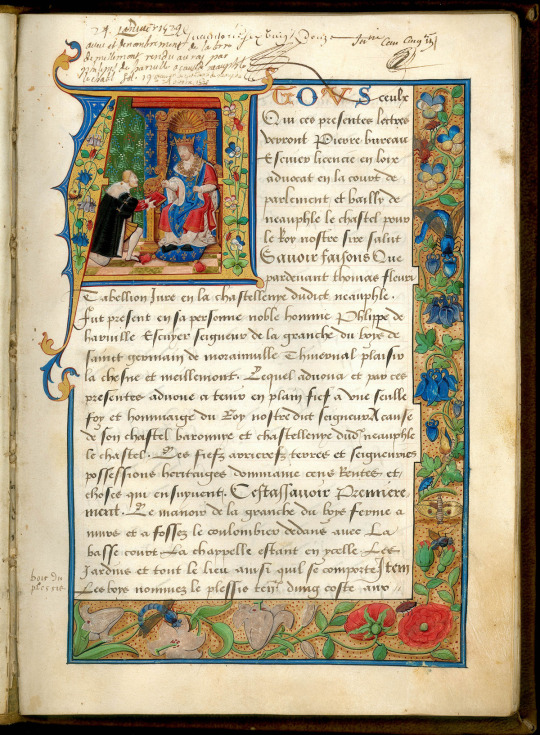 24. Januier 1529
adueu et denombrement de la terre
de meillemont rendu au roy par
philippe de haruille a cause neauphle
le chastel
A TOVS ceulx
Qui ces presentes lectres
verront Pierre bureau
Escuier licencie en loix
aduocat en la court de
parlement et bailly de
neauphle le chastel pour
le Roy nostre sire salut
Sauoir faisons Que
pardeuant thomas fleury
Tabellion Jure en la chastellenye dudict neauphle.
Fut present en sa personne noble homme Philippe de
haruille Escuyer seigneur de la granche du boys de
sainct germain de morainuille Thiuernal plaisir
la chesne et meillemont. Lequel aduoua et par ces
presentes aduoue a tenir en plain fief a vne seulle
foy et hommaige du Roy nostredit seigneur A cause
de son chastel baronnye et chastellenye dud neauphle
le chastel. Les fiefz arrierefz terres et seigneuries
possessions heritaiges dommaine cens Rentes et
choses qui ensuyuent. Cestassauoir Premiere-
ment. Le manoir de la granche du boys ferme a
murs et a fossez le coulombier dedans auec La
basse court La chappelle estant en ycelle Les
Jardins et tout le lieu ainsi quil se comporte Item
boit du
plessie
Les boys nommez le plessie ten dung coste aux